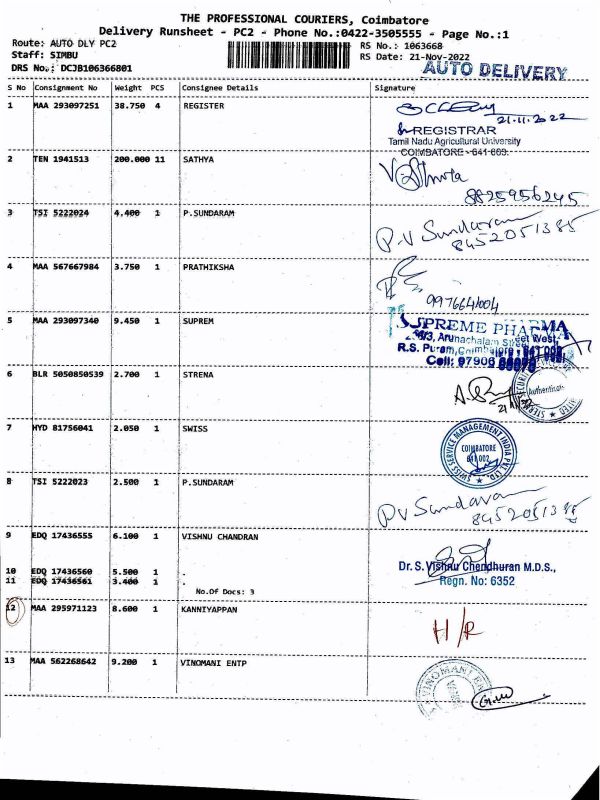 THE PROFESSIONAL COURIERS, Coimbatore
Delivery Runsheet - PC2 - Phone No.:0422-3505555 - Page No.:1
Route: AUTO DLY PC2 RS No.: 1063668
Staff: SIMBU RS Date: 21-Nov-2022
DRS No.: DCJB106366801 AUTO DELIVERY
S No Consignment No Weight PCS Consignee Details Signature
1 MAA 293097251 38.750 4 REGISTER
21.11.2022
REGISTRAR
Tamil Nadu Agricultural University
COIMBATORE - 641 003.
2 TEN 1941513 200.000 11 SATHYA
8825956245
3 TSI 5222024 4.400 1 P.SUNDARAM
P.V Sundaram
8452051385
4 MAA 567667984 3.750 1 PRATHIKSHA
9976641004
5 MAA 293097340 9.450 1 SUPREM
SUPREME PHARMA
Arunachalam Street West,
R.S. Puram, Coimbatore - 641 002
Cell: 97906
6 BLR 5050850539 2.700 1 STRENA
7 HYD 81756041 2.050 1 SWISS
SWISS SERVICE MANAGEMENT INDIA PVT. LTD.
COIMBATORE
641 002
8 TSI 5222023 2.500 1 P.SUNDARAM
P V Sundaram
8452051385
9 EDQ 17436555 6.100 1 VISHNU CHANDRAN
Dr. S. Vishnu Chendhuran M.D.S.,
Regn. No: 6352
10 EDQ 17436560 5.500 1 .
11 EDQ 17436561 3.400 1 .
No.Of Docs: 3
12 MAA 295971123 8.600 1 KANNIYAPPAN
H/R
13 MAA 562268642 9.200 1 VINOMANI ENTP
VINOMANI